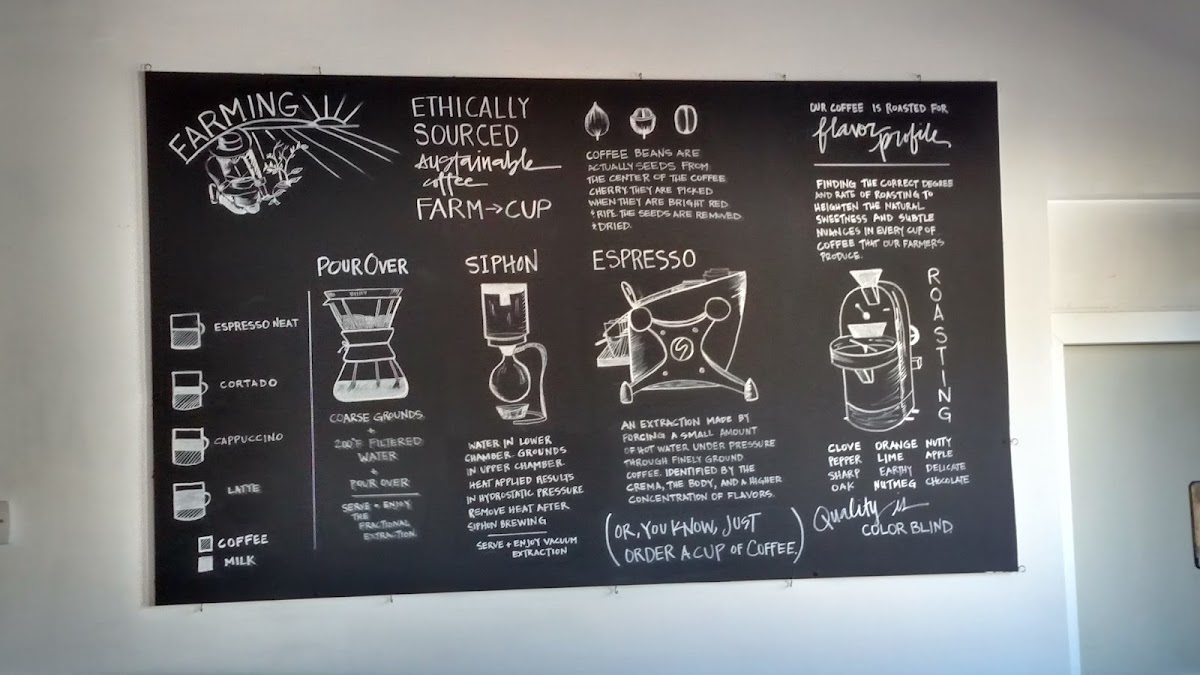 FARMING
ETHICALLY
SOURCED
sustainable
coffee
FARM→CUP
COFFEE BEANS ARE
ACTUALLY SEEDS FROM
THE CENTER OF THE COFFEE
CHERRY. THEY ARE PICKED
WHEN THEY ARE BRIGHT RED
+ RIPE. THE SEEDS ARE REMOVED
+ DRIED.
OUR COFFEE IS ROASTED FOR
flavor profile
FINDING THE CORRECT DEGREE
AND RATE OF ROASTING TO
HEIGHTEN THE NATURAL
SWEETNESS AND SUBTLE
NUANCES IN EVERY CUP OF
COFFEE THAT OUR FARMERS
PRODUCE.
ESPRESSO NEAT
CORTADO
CAPPUCCINO
LATTE
COFFEE
MILK
POUR OVER
COARSE GROUNDS
+
200°F FILTERED
WATER
+
POUR OVER
SERVE + ENJOY
THE
FRACTIONAL
EXTRACTION.
SIPHON
WATER IN LOWER
CHAMBER. GROUNDS
IN UPPER CHAMBER.
HEAT APPLIED RESULTS
IN HYDROSTATIC PRESSURE
REMOVE HEAT AFTER
SIPHON BREWING
SERVE + ENJOY VACUUM
EXTRACTION
ESPRESSO
AN EXTRACTION MADE BY
FORCING A SMALL AMOUNT
OF HOT WATER UNDER PRESSURE
THROUGH FINELY GROUND
COFFEE. IDENTIFIED BY THE
CREMA, THE BODY, AND A HIGHER
CONCENTRATION OF FLAVORS.
(OR, YOU KNOW, JUST
ORDER A CUP OF COFFEE.)
ROASTING
CLOVE ORANGE NUTTY
PEPPER LIME APPLE
SHARP EARTHY DELICATE
OAK NUTMEG CHOCOLATE
Quality is
COLOR BLIND